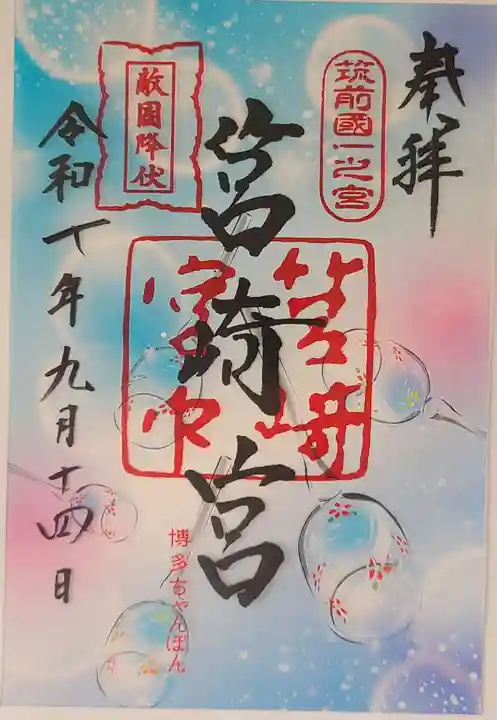 奉拝
筑前國一之宮
筥崎宮
敵國降伏
令和年九月十四日
博多ちゃんぽん